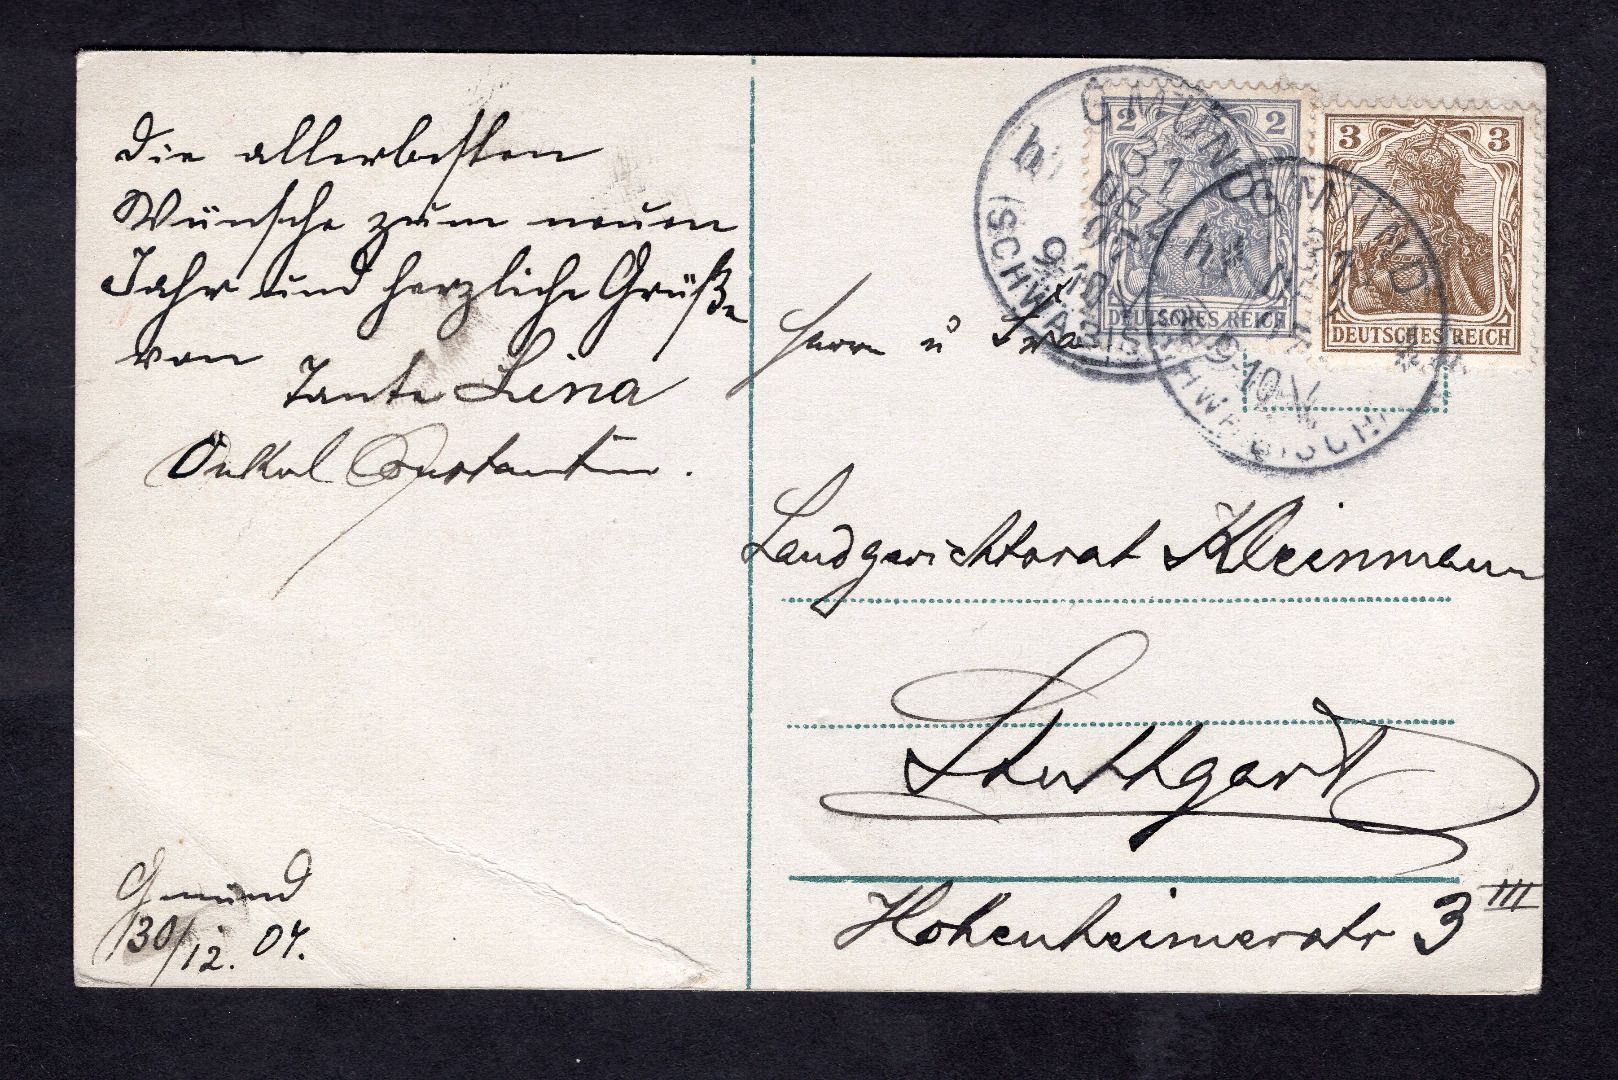 Die allerbesten
Wünsche zum neuen
Jahr und herzliche Grüße
von
Tante Lina
Onkel Constantin.
Gmünd
30/12. 07.
Herrn u Frau
Landgerichtsrat Kleinmann
Stuttgart
Hohenheimerstr 3 III
2 2
DEUTSCHES REICH
3 3
DEUTSCHES REICH
GMÜND
31
DEZ
07
9-10
(SCHWÄBISCH)
GMÜND
9-10 V
SCHWÄBISCH